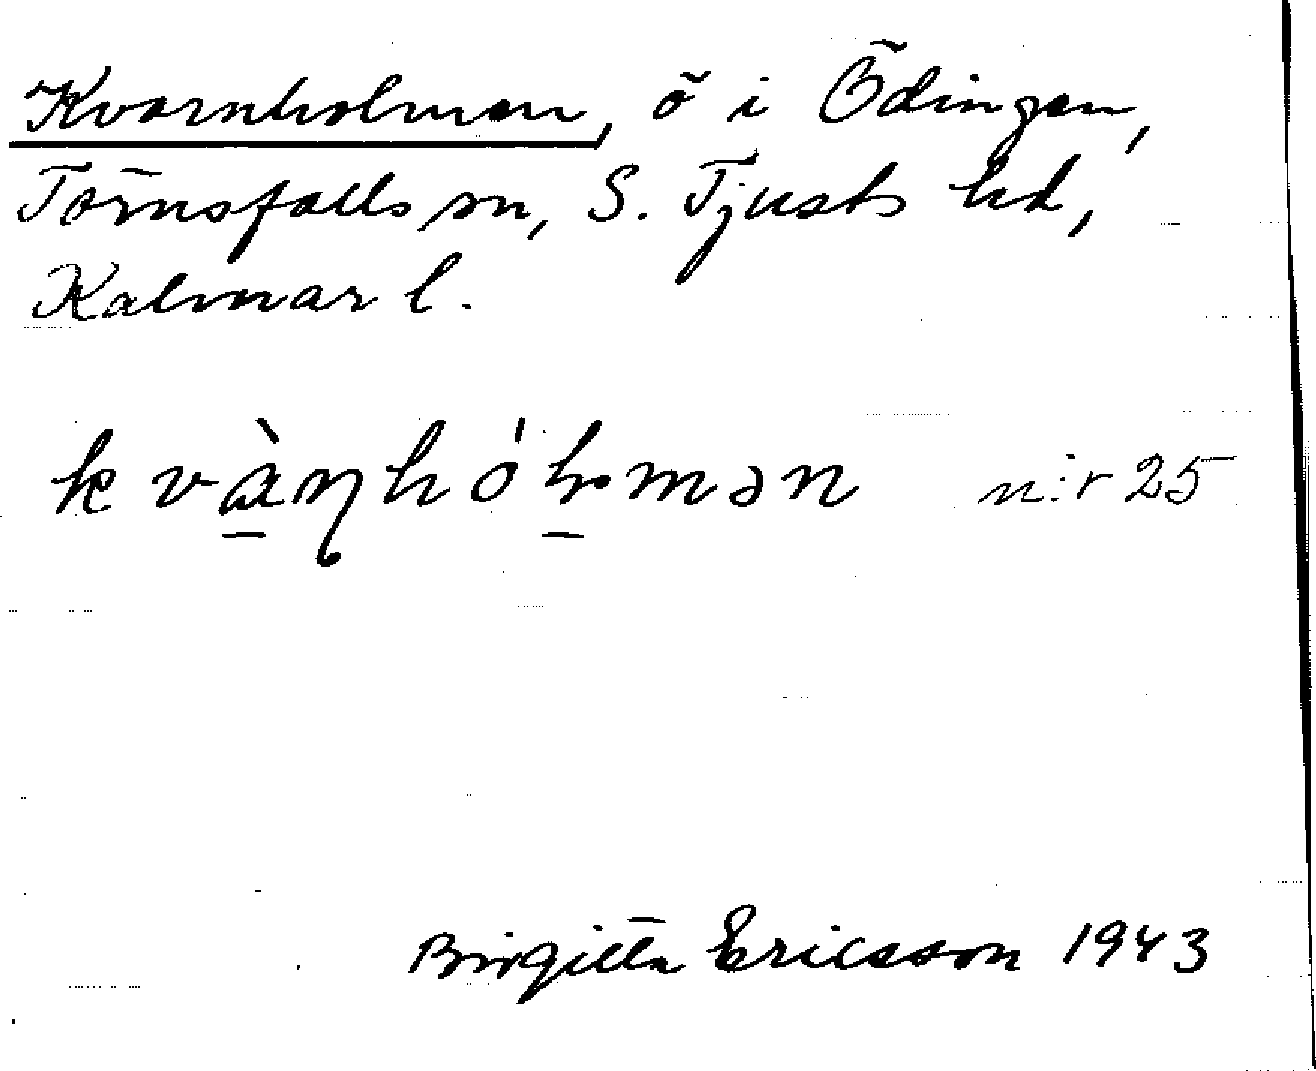 Kvarnholmen, ö i Ödingen,
Törnsfalls sn, S. Tjusts hd,
Kalmar l.
kvàɳhólmən n:r 25
Birgitta Ericsson 1943